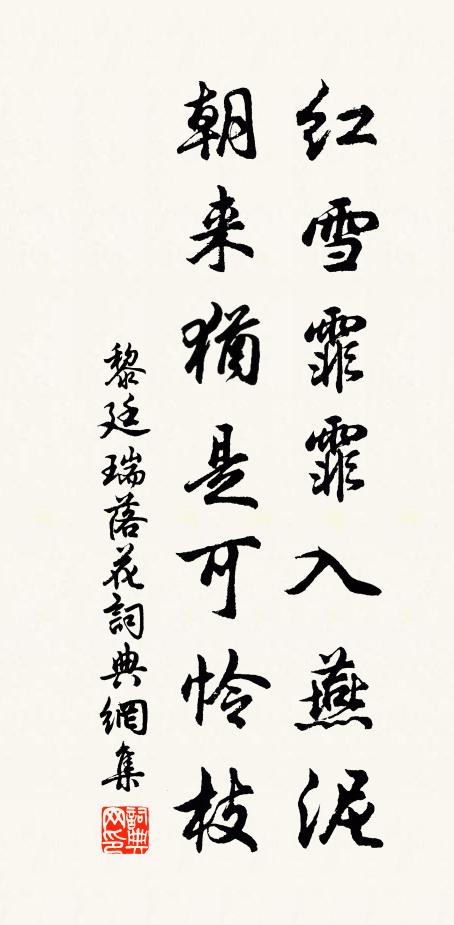 红雪霏霏入燕泥
朝来猶是可怜枝
黎廷瑞落花詞典網集
詞典网印